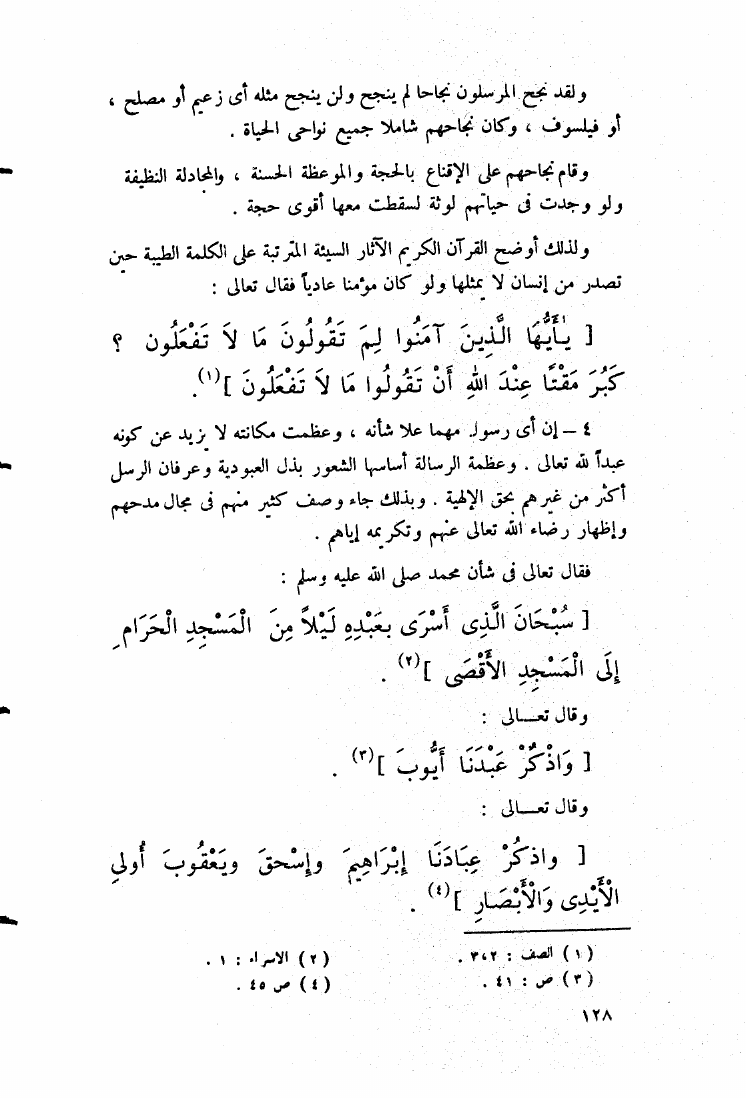 ولقد نجح المرسلون نجاحا لم ينجح ولن ينجح مثله أى زعيم أو مصلح ،
أو فيلسوف ، وكان نجاحهم شاملا جميع نواحى الحياة .
وقام نجاحهم على الإقناع بالحجة والموعظة الحسنة ، والمجادلة النظيفة
ولو وجدت فى حياتهم لوثة لسقطت معها أقوى حجة .
ولذلك أوضح القرآن الكريم الآثار السيئة المترتبة على الكلمة الطيبة حين
تصدر من إنسان لا يمثلها ولو كان مؤمنا عادياً فقال تعالى :
[ يٰأَيُّهَا الَّذِينَ آمَنُوا لِمَ تَقُولُونَ مَا لاَ تَفْعَلُون ؟
كَبُرَ مَقْتًا عِنْدَ اللهِ أَنْ تَقُولُوا مَا لاَ تَفْعَلُونَ ](١).
٤ – إن أى رسول مهما علا شأنه ، وعظمت مكانته لا يزيد عن كونه
عبداً لله تعالى . وعظمة الرسالة أساسها الشعور بذل العبودية وعرفان الرسل
أكثر من غيرهم بحق الإلهية . وبذلك جاء وصف كثير منهم فى مجال مدحهم
وإظهار رضاء الله تعالى عنهم وتكريمه إياهم .
فقال تعالى فى شأن محمد صلى الله عليه وسلم :
[ سُبْحَانَ الَّذِى أَسْرَى بِعَبْدِهِ لَيْلاً مِنَ الْمَسْجِدِ الْحَرَامِ
إِلَى الْمَسْجِدِ الأَقْصَى ](٢) .
وقال تعـــالى :
[ وَاذْكُرْ عَبْدَنَا أَيُّوبَ ](٣) .
وقال تعـــالى :
[ واذكُرْ عِبَادَنَا إِبْرَاهِيمَ وإِسْحقَ ويَعْقُوبَ أُولِى
الْأَيْدِى وَالْأَبْصَارِ ](٤) .
(١) الصف : ٢،٣ . (٢) الاسراء : ١ .
(٣) ص : ٤١ . (٤) ص ٤٥ .
١٢٨